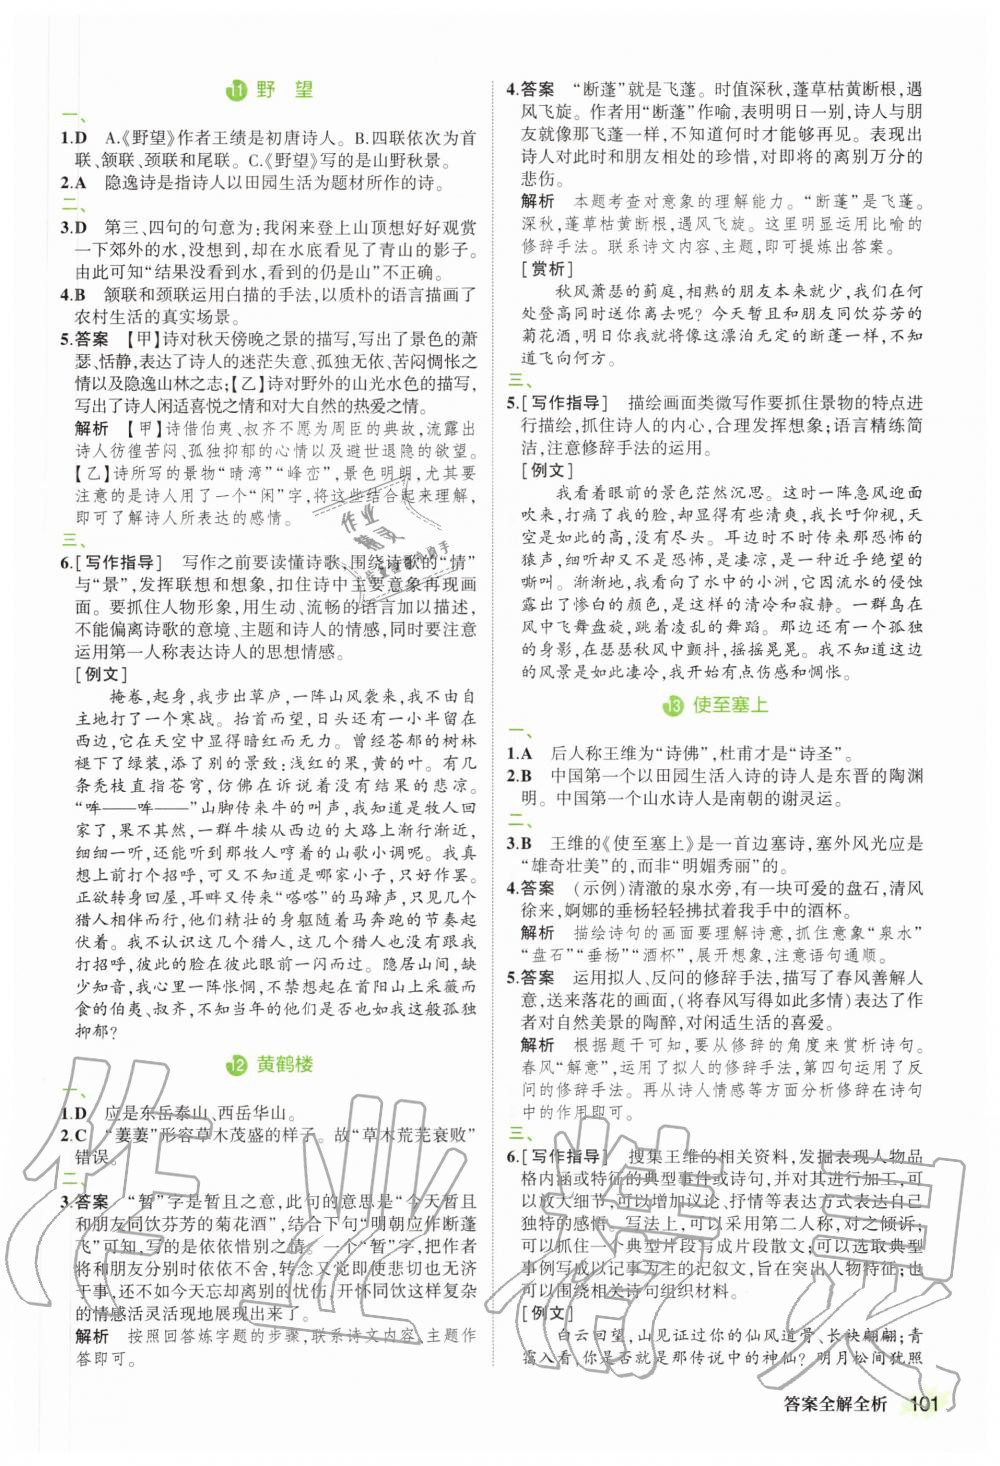 11 野　望
一、
1.D　A.《野望》作者王绩是初唐诗人。B.四联依次为首
联、颔联、颈联和尾联。C.《野望》写的是山野秋景。
2.A　隐逸诗是指诗人以田园生活为题材所作的诗。
二、
3.D　第三、四句的句意为：我闲来登上山顶想好好观赏
一下郊外的水，没想到，却在水底看见了青山的影子。
由此可知“结果没看到水，看到的仍是山”不正确。
4.B　颔联和颈联运用白描的手法，以质朴的语言描写了
农村生活的真实场景。
5.答案　【甲】诗对秋天傍晚之景的描写，写出了景色的萧
瑟、恬静，表达了诗人的迷茫失意、孤独无依、苦闷惆怅之
情以及隐逸山林之志；【乙】诗对野外的山光水色的描写，
写出了诗人闲适喜悦之情和对大自然的热爱之情。
解析　【甲】诗借伯夷、叔齐不愿为周臣的典故，流露出
诗人彷徨苦闷、孤独抑郁的心情以及避世退隐的欲望。
【乙】诗所写的景物“晴湾”“峰峦”，景色明朗，尤其要
注意的是诗人用了一个“闲”字，将这些结合起来理解，
即可了解诗人所表达的感情。
三、
6.[写作指导]　写作之前要读懂诗歌，围绕诗歌的“情”
与“景”，发挥联想和想象，扣住诗中主要意象再现画
面。要抓住人物形象，用生动、流畅的语言加以描述，
不能偏离诗歌的意境、主题和诗人的情感，同时要注意
运用第一人称表达诗人的思想情感。
[例文]
掩卷，起身，我步出草庐，一阵山风袭来，我不由自
主地打了一个寒战。抬首而望，日头还有一小半留在
西边，它在天空中显得暗红而无力。曾经苍郁的树林
褪下了绿装，添了别的景致；浅红的果，黄的叶。有几
条秃枝直指苍穹，仿佛在感叹没有结果的悲凉。
“哞——哞——”山脚传来牛的叫声，我知道是牧人回
家了，果不其然，一群牛犊从西边的大路上渐行渐近，
细细一听，还能听到牧人哼着的山歌小调呢。我真
想跟他们打个招呼，可又不知道是哪家小子，只好作罢。
正欲转身回屋，耳畔又传来“嗒嗒”的马蹄声，只见几个
猎人相伴而行，他们精壮的身躯随着马奔跑的节奏起
伏着。我不认识这几个猎人，这几个猎人也没有跟我
打招呼，彼此的脸在彼此眼前一闪而过。隐居山间，缺
少知音，我已心生怅惘，不禁想起在首阳山上采薇而
食的伯夷、叔齐，不知当年的他们是否也像我这般孤独
抑郁？
12 黄鹤楼
一、
1.D　应是东岳泰山、西岳华山。
2.C　“萋萋”形容草木茂盛的样子。故“草木荒芜衰败”
错误。
二、
3.答案　“暂”字是暂且之意，此句的意思是“今天暂且
和朋友同饮芬芳的菊花酒”，结合下句“明朝应作断蓬
飞”可知，写的是依依惜别之情。一个“暂”字，把作者
将和朋友分别时依依不舍，转念又想即使悲切也无济
于事，还不如今天忘却离别的忧伤，开怀同饮这样复杂
的情感活灵活现地展现出来了。
解析　按照回答炼字题的步骤，联系诗文内容、主题作
答即可。
4.答案　“断蓬”就是飞蓬。时值深秋，蓬草枯黄断根，遇
风飞旋。作者用“断蓬”作喻，表明明日一别，诗人与朋
友就像那飞蓬一样，不知道何时才能够再见。表现出
诗人对此时和朋友相处的珍惜，对即将的离别万分的
悲伤。
解析　本题考查对意象的理解能力。“断蓬”是飞蓬。
深秋，蓬草枯黄断根，遇风飞旋。这里明显运用比喻的
修辞手法。联系诗文内容、主题，即可提炼出答案。
[赏析]
秋风萧瑟的蓟庭，相熟的朋友本来就少，我们在何
处登高同时送你离去呢？今天暂且和朋友同饮芬芳的
菊花酒，明日你我就像这漂泊无定的断蓬一样，不知
道飞向何方。
三、
5.[写作指导]　描绘画面类微写作要抓住景物的特点进
行描绘，抓住诗人的内心，合理发挥想象；语言精练简
洁，注意修辞手法的运用。
[例文]
我看着眼前的景色茫然沉思。这时一阵急风迎面
吹来，打疼了我的脸，却有些清爽，我长叶仰视，天
空是如此高远，我却是如此渺小。耳边时不时传来恐怖的
猿声，细听却又不是恐怖，是凄凉，是一种近乎绝望的
嘶叫。渐渐地，我看向了水中的小洲，它因河水的侵蚀
露出了惨白的颜色，是这样的清冷和寂静。一群鸟在
风中飞舞盘旋，跳着凌乱的舞蹈。那一个个因为孤独
的身影，在瑟瑟秋风中颤抖，摇摇晃晃。因为我面前
的风景是如此凄冷，我开始有点伤感和惆怅。
13 使至塞上
一、
1.A　后人称王维为“诗佛”，杜甫才是“诗圣”。
2.B　中国第一个以田园生活入诗的诗人是东晋的陶渊
明。中国第一个山水诗人是南朝的谢灵运。
二、
3.B　王维的《使至塞上》是一首边塞诗，塞外风光应是
“雄奇壮美”的，而非“明媚秀丽”的。
4.答案　(示例)清澈的泉水旁，有一块可爱的盘石，清风
徐来，婀娜的垂杨轻轻拂拭着我手中的酒杯。
解析　描绘诗句的画面要理解诗意，抓住意象“泉水”
“盘石”“垂杨”“酒杯”，展开想象，注意语句通顺。
5.答案　运用拟人、反问的修辞手法，描写了春风善解人
意，送来落花的画面，(将春风写得如此多情)表达了作
者对自然美景的陶醉，对闲适生活的喜爱。
解析　根据题干可知，要从修辞的角度来赏析诗句。
春风“解意”，运用了拟人的修辞手法，第四句运用了反
问的修辞手法。再从诗人情感等方面分析修辞在诗句
中的作用即可。
三、
6.[写作指导]　搜集王维的相关资料，发掘表现人物品
格内涵或特征的典型事件或诗句，并对其进行加工，可
以放大细节，可以增加议论、抒情等表达方式表达自己
独特的感悟。写法上，可以采用第二人称，对之倾诉；
可以集中一个典型片段写成片段散文；可以选取典型
事例写成以记事为主的记叙文，旨在突出人物特征；也
可以围绕相关诗句组织材料。
[例文]
白云回望，山见证过你的仙风道骨、长袂翩翩；青
霭入看，你是否就是那传说中的神仙？明月松间犹照
答案全解全析　101
作业精灵